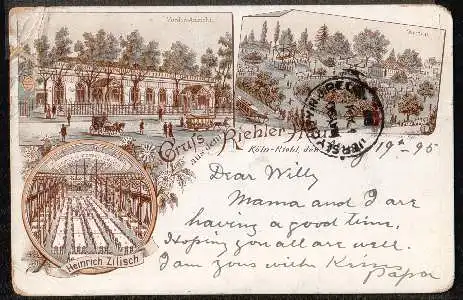 Vorder-Ansicht.
Gruss
aus dem Riehler-
Köln-Riehl, den
19 - 95
Dear Willy
Mama and I are
having a good time.
Hoping you all are well.
I am yous with
Papa
Heinrich Zilisch